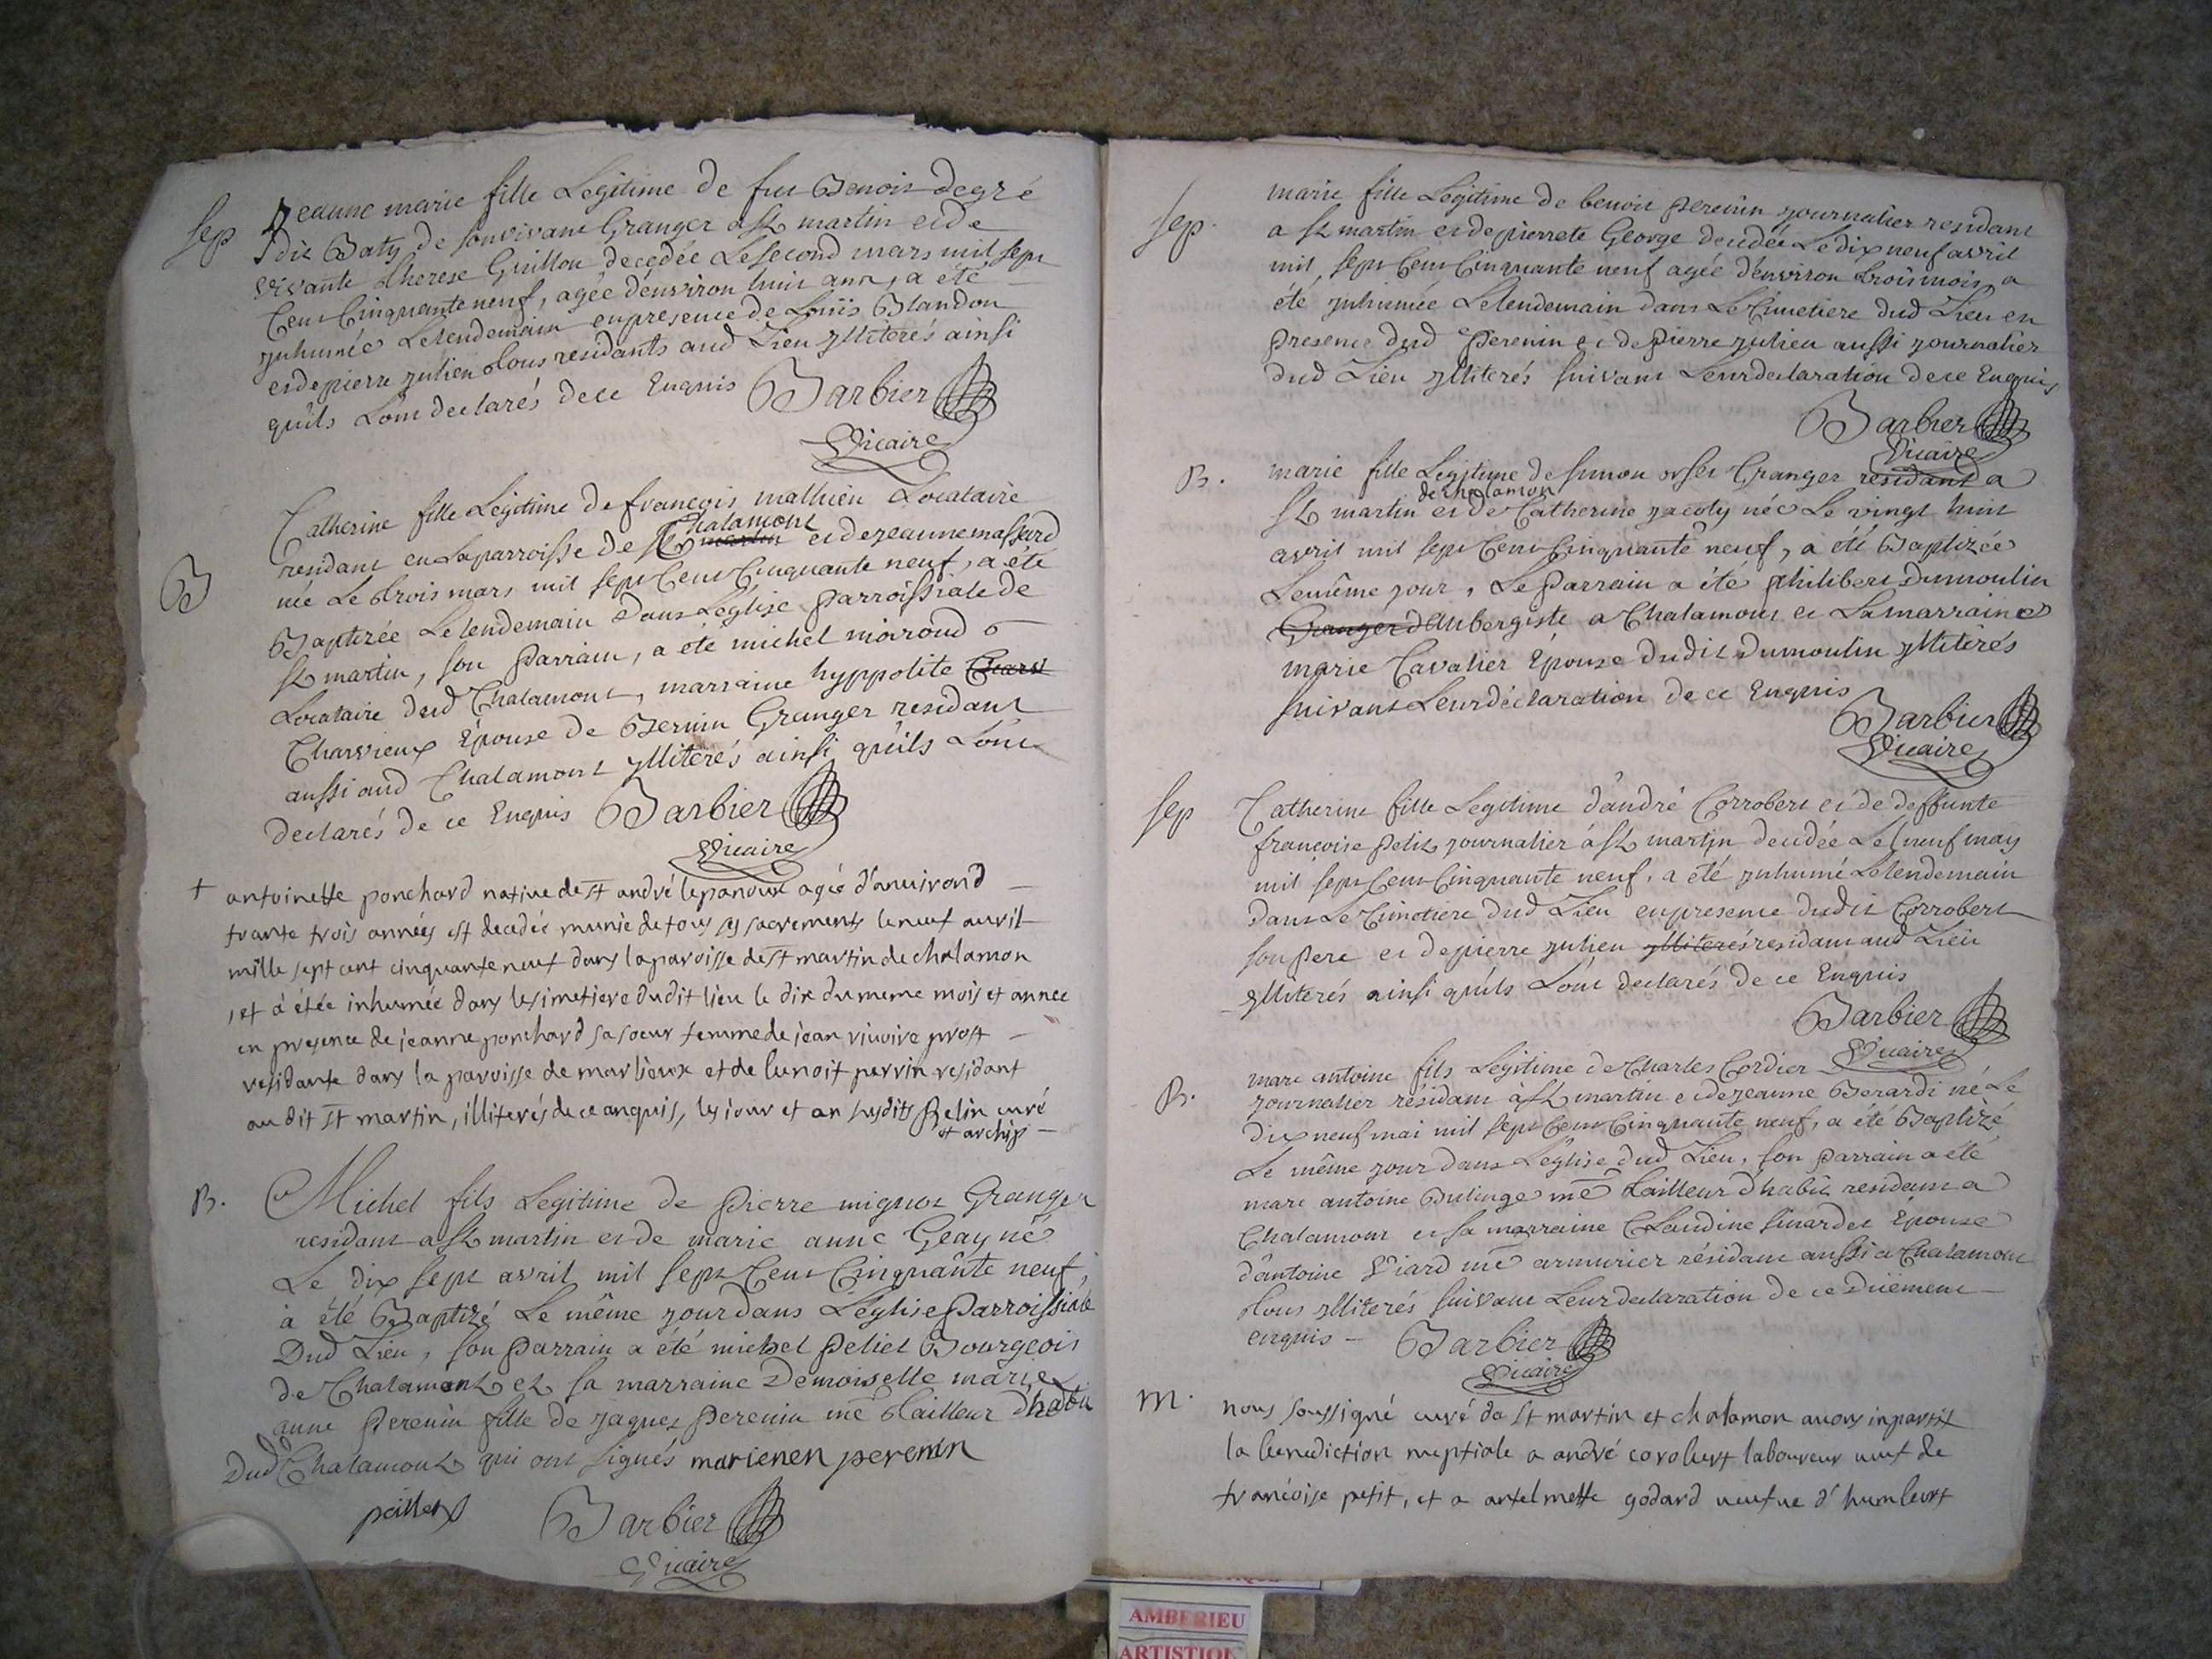 Sep Jeanne marie fille Legitime de feu Benoit degré
dit Baty de son vivant Granger a St martin et de
vivante therese Guillon decedée Le second mars mil sept
Cent Cinquante neuf, agée d'environ huit ans, a été
inhumée Le lendemain en presence de Loüis Blandon
et de pierre julien tous residants aud Lieu illiterés ainsi
qu'ils L'ont declarés de ce Enquis Barbier
Vicaire
Catherine fille Légitime de françois mathieu Locataire
Chalamont
B residant en La parroisse de St martin et de jeanne massard
née Le trois mars mil sept Cent Cinquante neuf, a été
Baptizée Le lendemain dans L'église Parroissiale de
St martin, son Parrain, a été michel moiroud
Locataire dud Chalamont, marraine hyppolite
Charvieux Epouse de Bernin Granger residant
aussi aud Chalamont illitérés ainsi qu'ils L'ont
declarés de ce Enquis Barbier
Vicaire
+ antoinette ponchard native de st andré lepanoux agée d'anuirond
trante trois années est decedée munie de tous ses sacrements le neuf auvril
mille sept cent cinquante neuf dans la paroisse de st martin de chalamon
, et a étée inhumée dans le simetiere dudit lieu le dix du meme mois et annee
en presence de jeanne ponchard sa soeur femme de jean viuoire prost
residante dans la paroisse de marlieux et de benoit perrin residant
audit st martin, illiterés de ce anquis, les iour et an susdits Belin curé
et archip
B. Michel fils Legitime de Pierre mignot Granger
residant a St martin et de marie anne Geay né
Le dix sept avril mil sept Cent Cinquante neuf,
à été Baptizé Le même jour dans L'église Parroissiale
Dud Lieu, son Parrain a été michel Peliet Bourgeois
de Chalamont et sa marraine Demoiselle marie
anne Perenin fille de jaques Perenin mé tailleur d'habit
Dud Chalamont qui ont signés marienen perenin
Barbier
Vicaire
Sep. marie fille Légitime de benoit Perenin journalier residant
a St martin et de pierrete George decedée Le dix neuf avril
mil sept Cent Cinquante neuf agée d'environ trois mois, a
été inhumée Le lendemain dans Le Cimetiere dud Lieu en
Presence dud Perenin et de Pierre julien aussi journalier
dud Lieu illiterés suivant Leur declaration de ce Enquis
Barbier
Vicaire
B. marie fille Legitime de simon Granger residant a
de chalamon
St martin et de Catherine jacoty née Le vingt huit
avril mil sept Cent Cinquante neuf, a été Baptizée
Le même jour, Le Parrain a été philibert Dumoulin
Granger d'Aubergiste a Chalamont et La marraine
marie Cavalier Epouse dudit Dumoulin illiterés
suivant Leur déclaration de ce Enquis
Barbier
Vicaire
Sep Catherine fille Legitime d'andré Corrobert et de deffunte
françoise Petit journalier à St martin decedée Le neuf may
mil sept Cent Cinquante neuf, a été inhumé Le lendemain
dans Le Cimetiere dud Lieu en presence dudit Corrobert
son Pere et de pierre julien illiterés residant aud Lieu
illiterés ainsi qu'ils L'ont declarés de ce Enquis
Barbier
Vicaire
marc antoine fils Légitime de Charles Cordier
B. journalier résidant à St martin et de jeanne Berardi né Le
dix neuf mai mil sept Cent Cinquante neuf, a été Baptizé
Le même jour dans L'église dud Lieu, son Parrain a été
marc antoine Dulinge mé tailleur d'habit residant a
Chalamont et sa marraine Claudine Sinardet Epouse
d'antoine Viard mé armurier résidant aussi a Chalamont
tous illiterés suivant Leur declaration de ce Duëment
enquis Barbier
Vicaire
M. nous soussigné curé da st martin et chalamon auons inpartit
la benediction nuptiale a andré corobert laboureur ueuf de
francoise petit, et a antelmette godard ueufue d'humbert
AMBERIEU